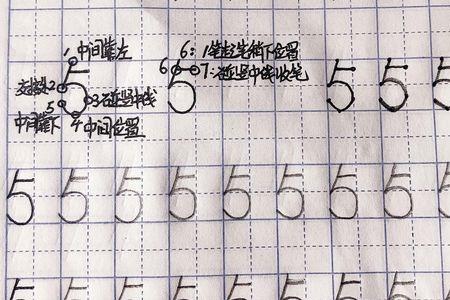 1 中间靠左 6：1笔起笔稍下位置
6 7：过竖中线收笔
5 5 5 5 5
交点2
3过竖中线
5
中间靠下 4 中间位置
5 5 5 5 5 5 5 5 5
5 5 5 5 5 5 5 5 5